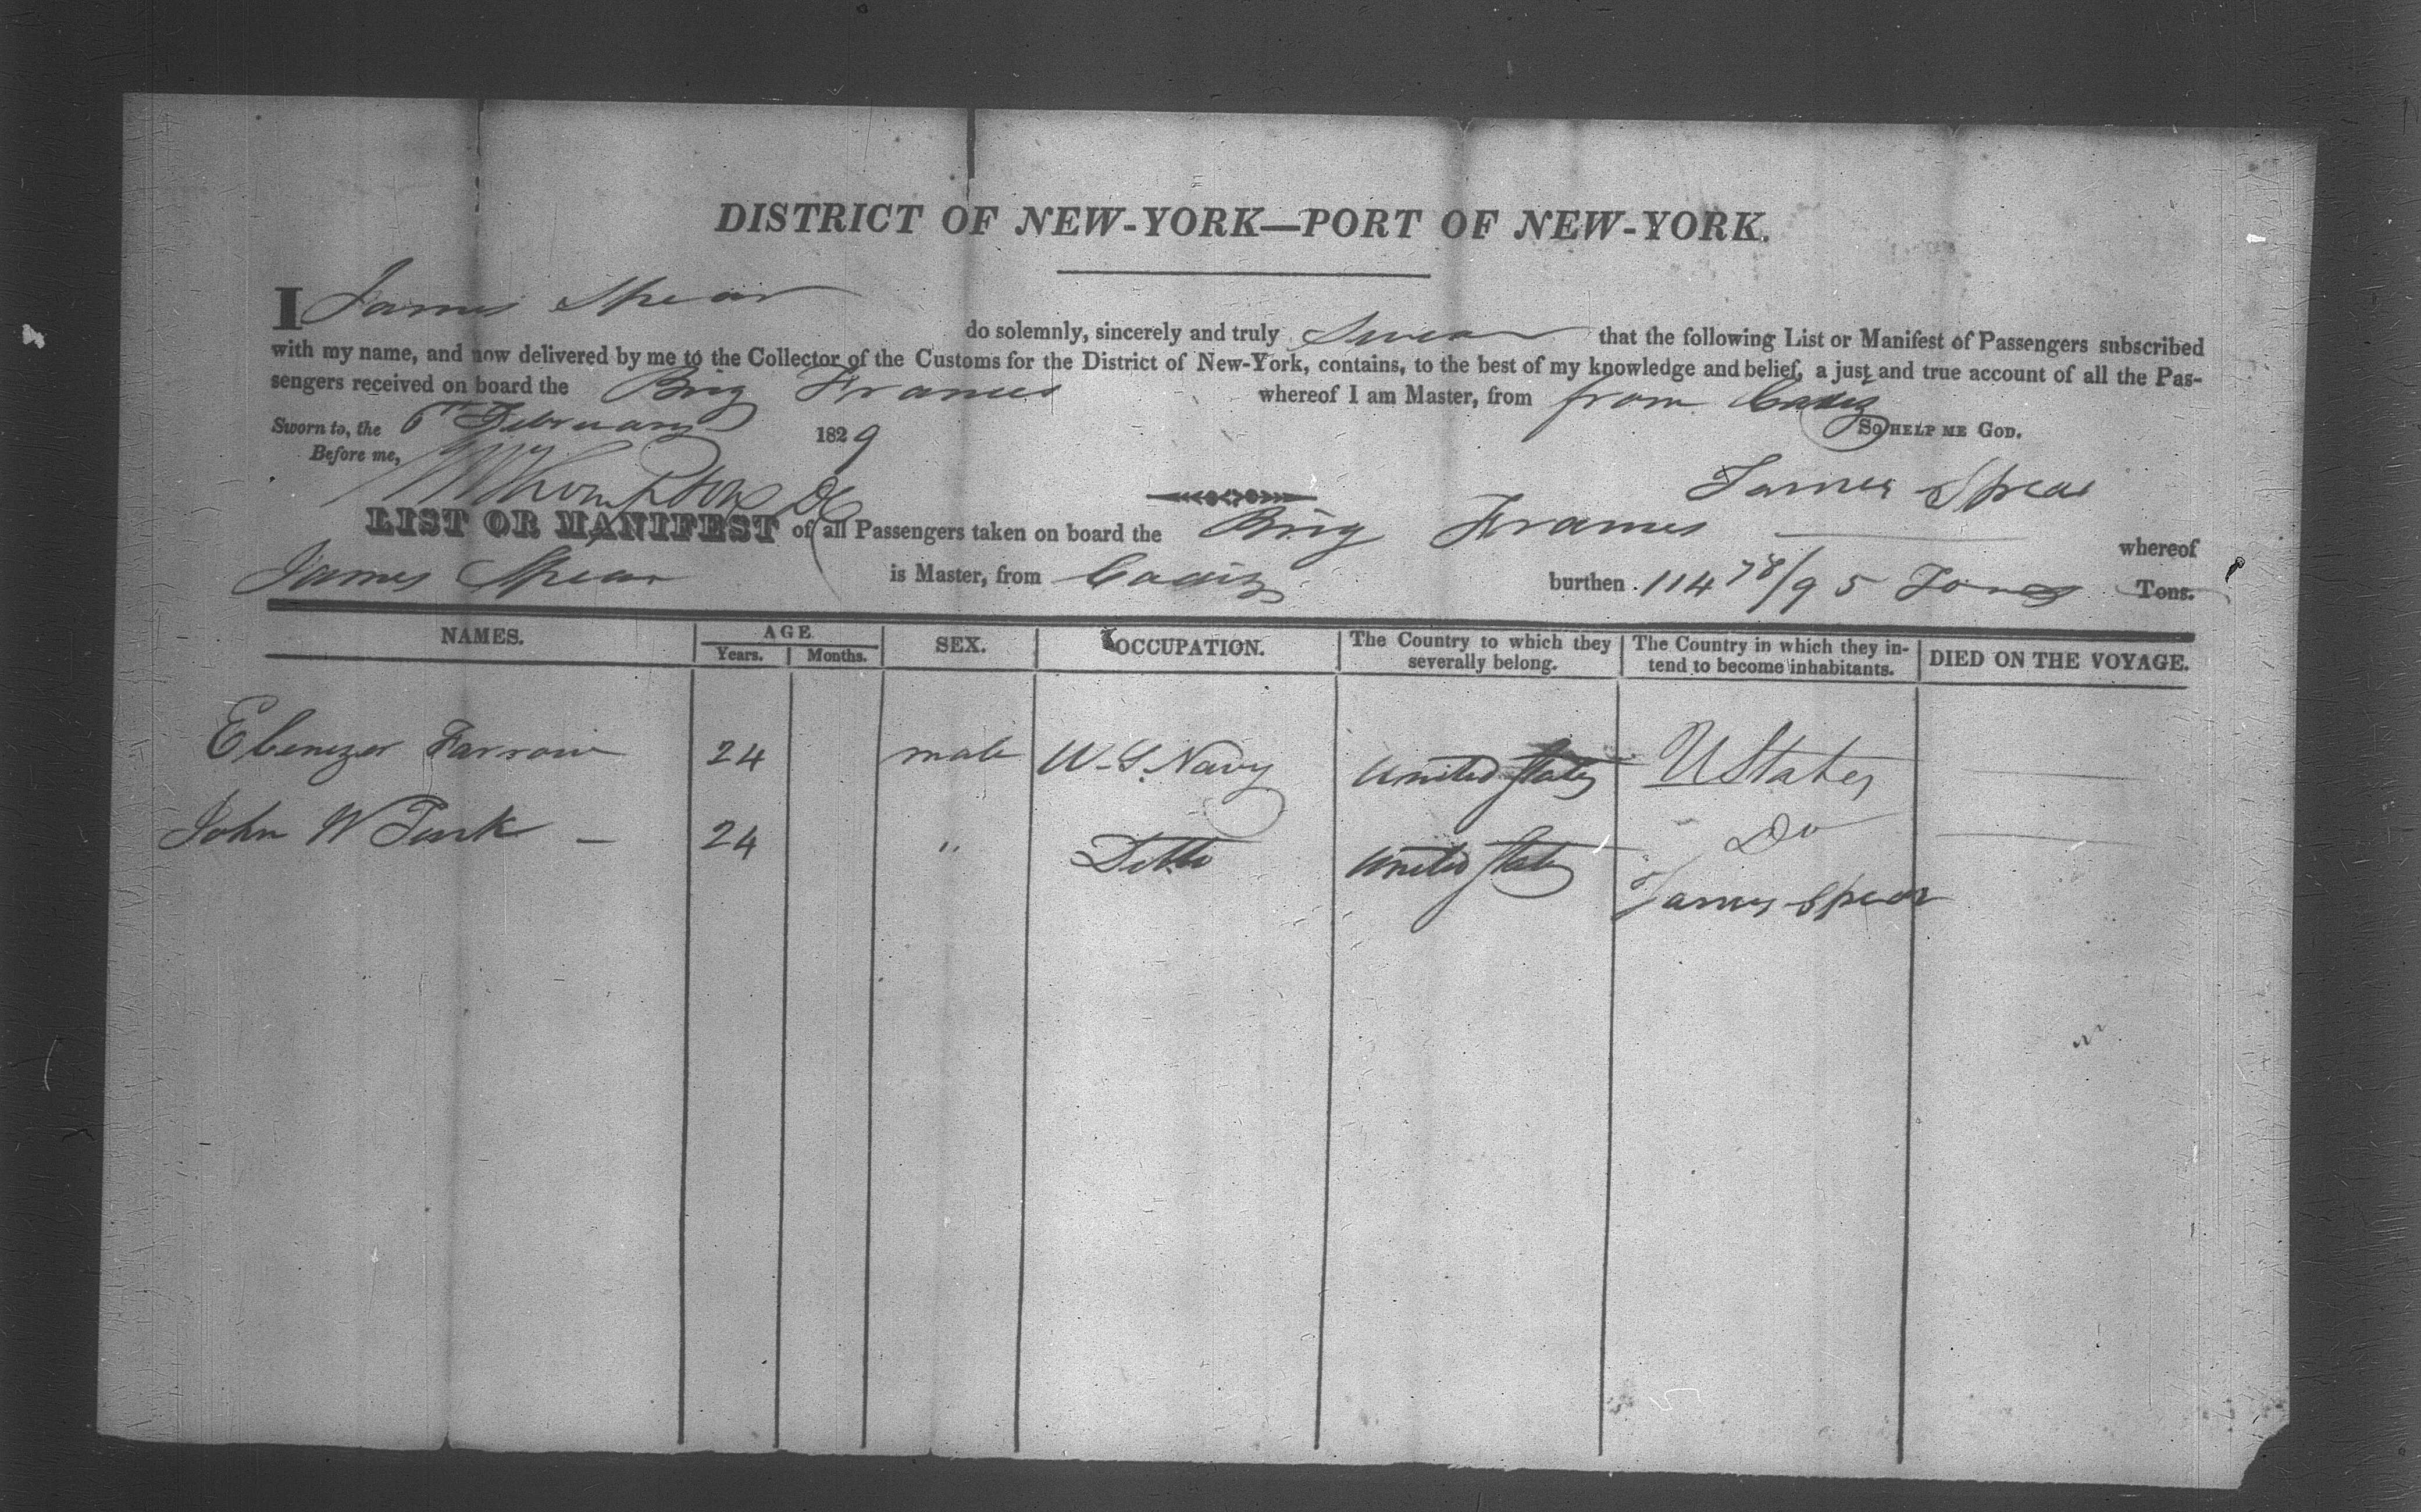 DISTRICT OF NEW-YORK—PORT OF NEW-YORK.
I James Spear do solemnly, sincerely and truly Swear that the following List or Manifest of Passengers subscribed
with my name, and now delivered by me to the Collector of the Customs for the District of New-York, contains, to the best of my knowledge and belief, a just and true account of all the Pas-
sengers received on board the Brig Frances whereof I am Master, from from Cadiz
Sworn to, the 6th February 1829 So HELP ME GOD.
Before me, Thompson DC James Spear
LIST OR MANIFEST of all Passengers taken on board the Brig Frances whereof
James Spear is Master, from Cadiz burthen 114 78/95 Tons Tons.
NAMES. AGE Years. Months. SEX. OCCUPATION. The Country to which they severally belong. The Country in which they in-tend to become inhabitants. DIED ON THE VOYAGE.
Ebenezer Farrow 24 male U.S. Navy United States U States
John W Turk — 24 " Ditto United States Do
James Spear